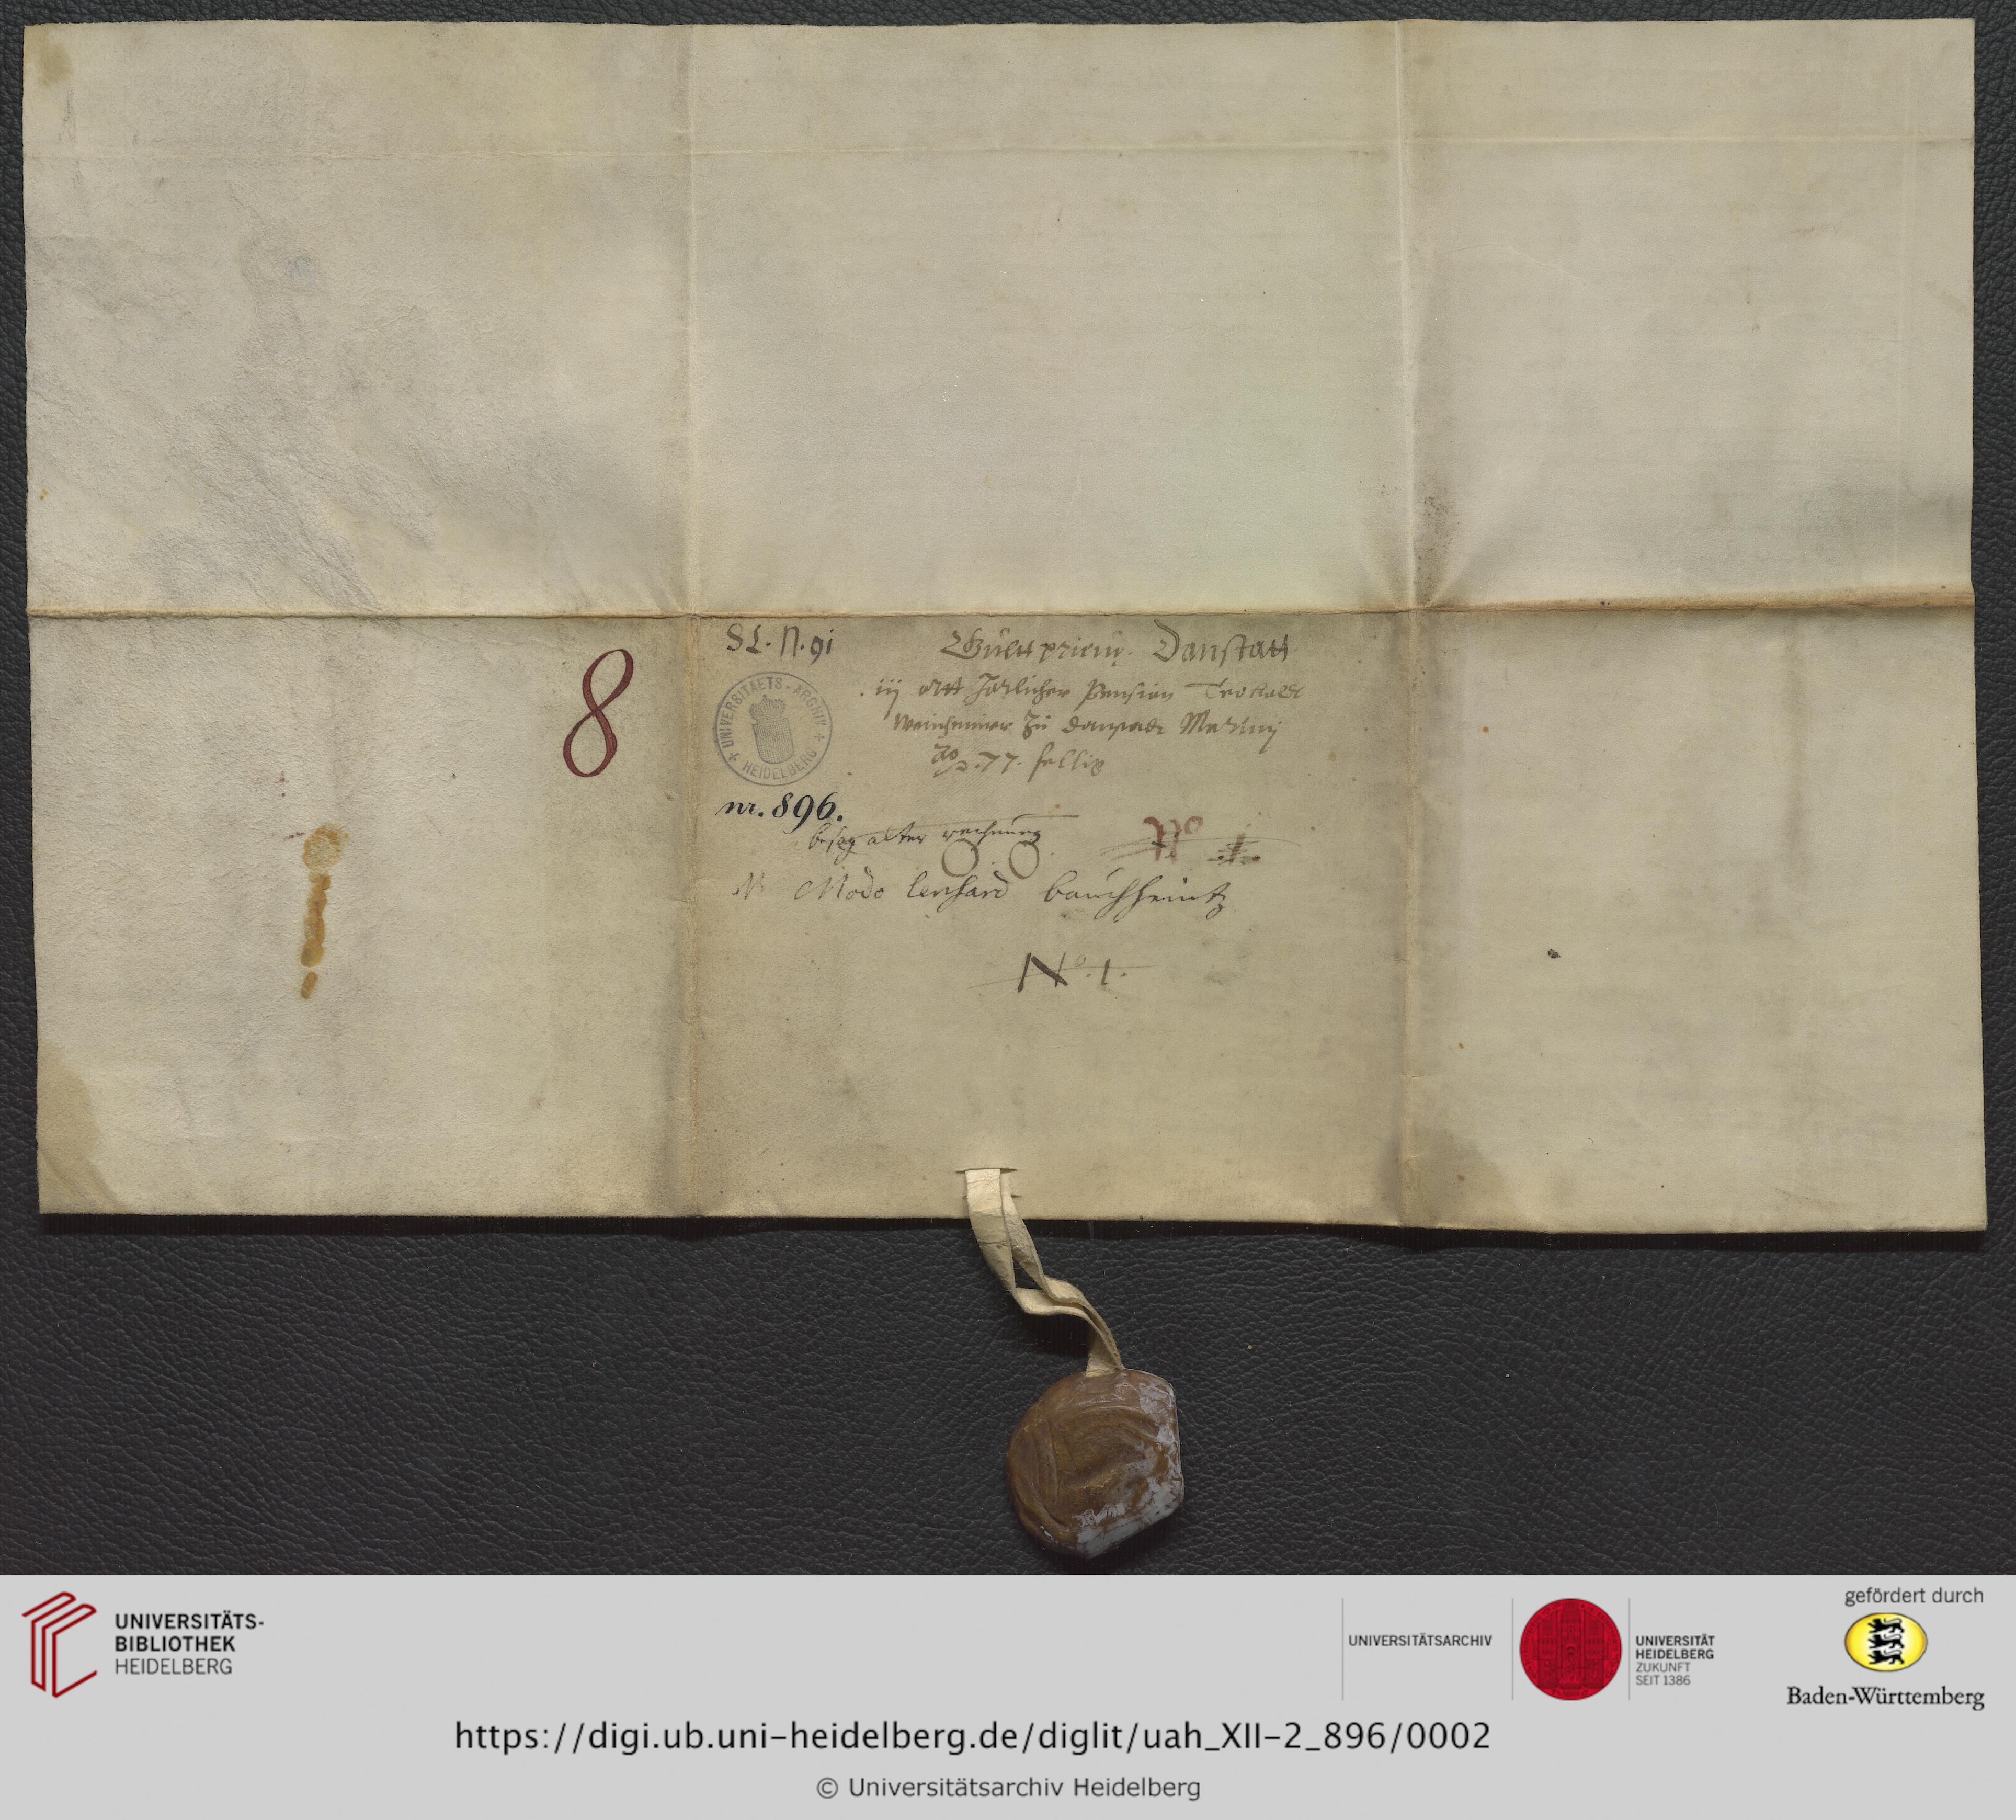 8
SL. N. 91
Danstatt
iij ortt Jarlicher Pension
Weinheimer zu Danstadt Martinj
Ao 77 fellig
UNIVERSITAETS-ARCHIV
HEIDELBERG
nr. 896.
besag alter rechnung
Modo lenhard bauchheintz
No. 1.
UNIVERSITÄTS-
BIBLIOTHEK
HEIDELBERG
UNIVERSITÄTSARCHIV
UNIVERSITÄT
HEIDELBERG
ZUKUNFT
SEIT 1386
gefördert durch
Baden-Württemberg
https://digi.ub.uni-heidelberg.de/diglit/uah_XII-2_896/0002
© Universitätsarchiv Heidelberg